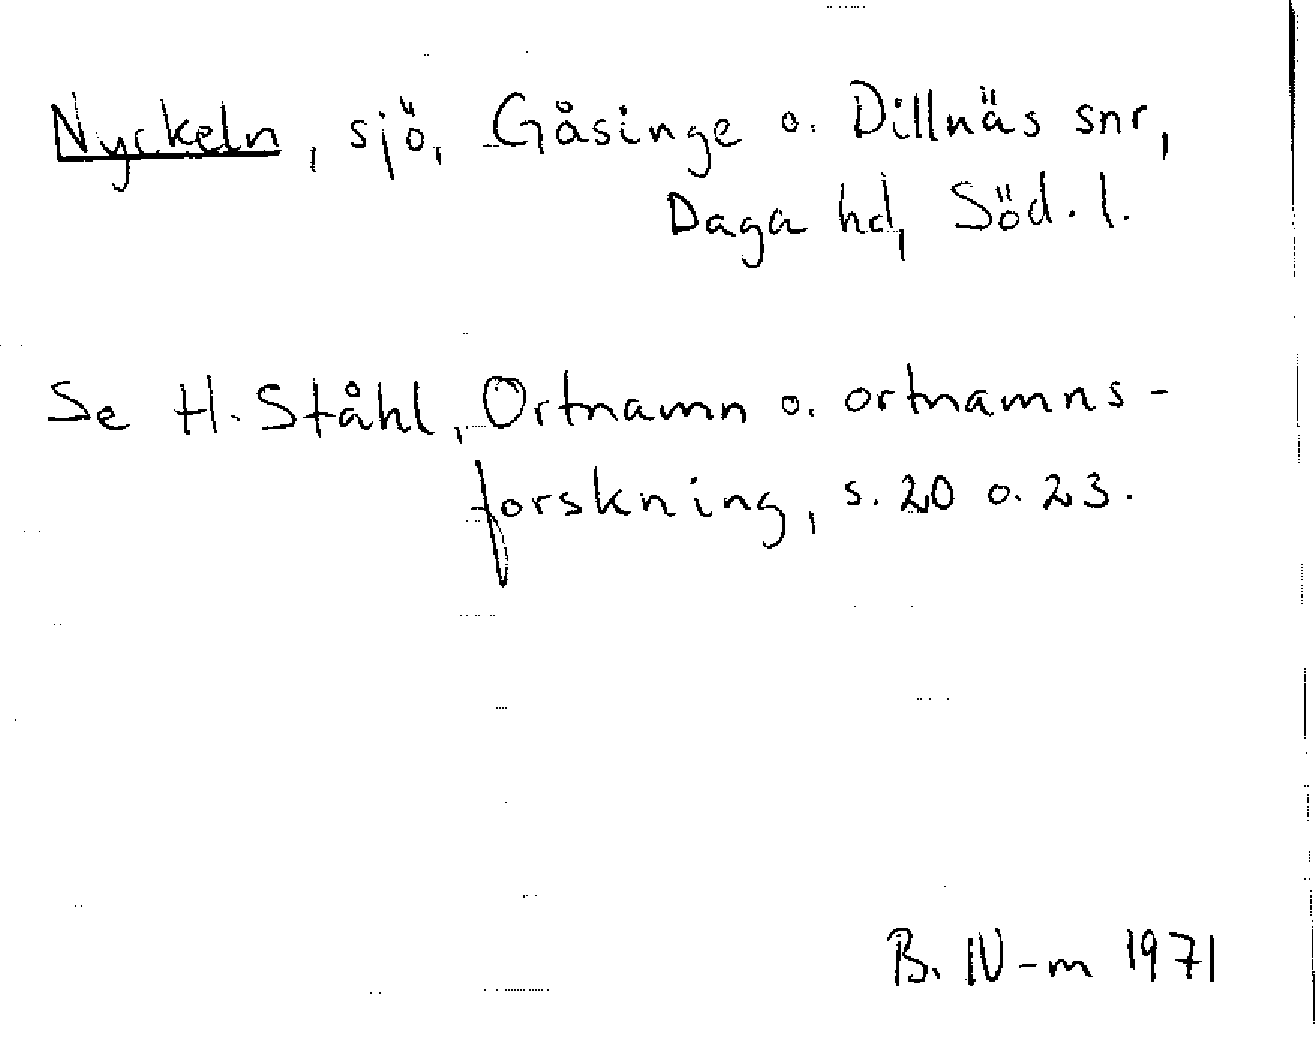 Nyckeln, sjö, Gåsinge o. Dillnäs snr,
Daga hd, Söd. l.
Se H. Ståhl, Ortnamn o. ortnamns-
forskning, s. 20 o. 23.
B. IV-m 1971